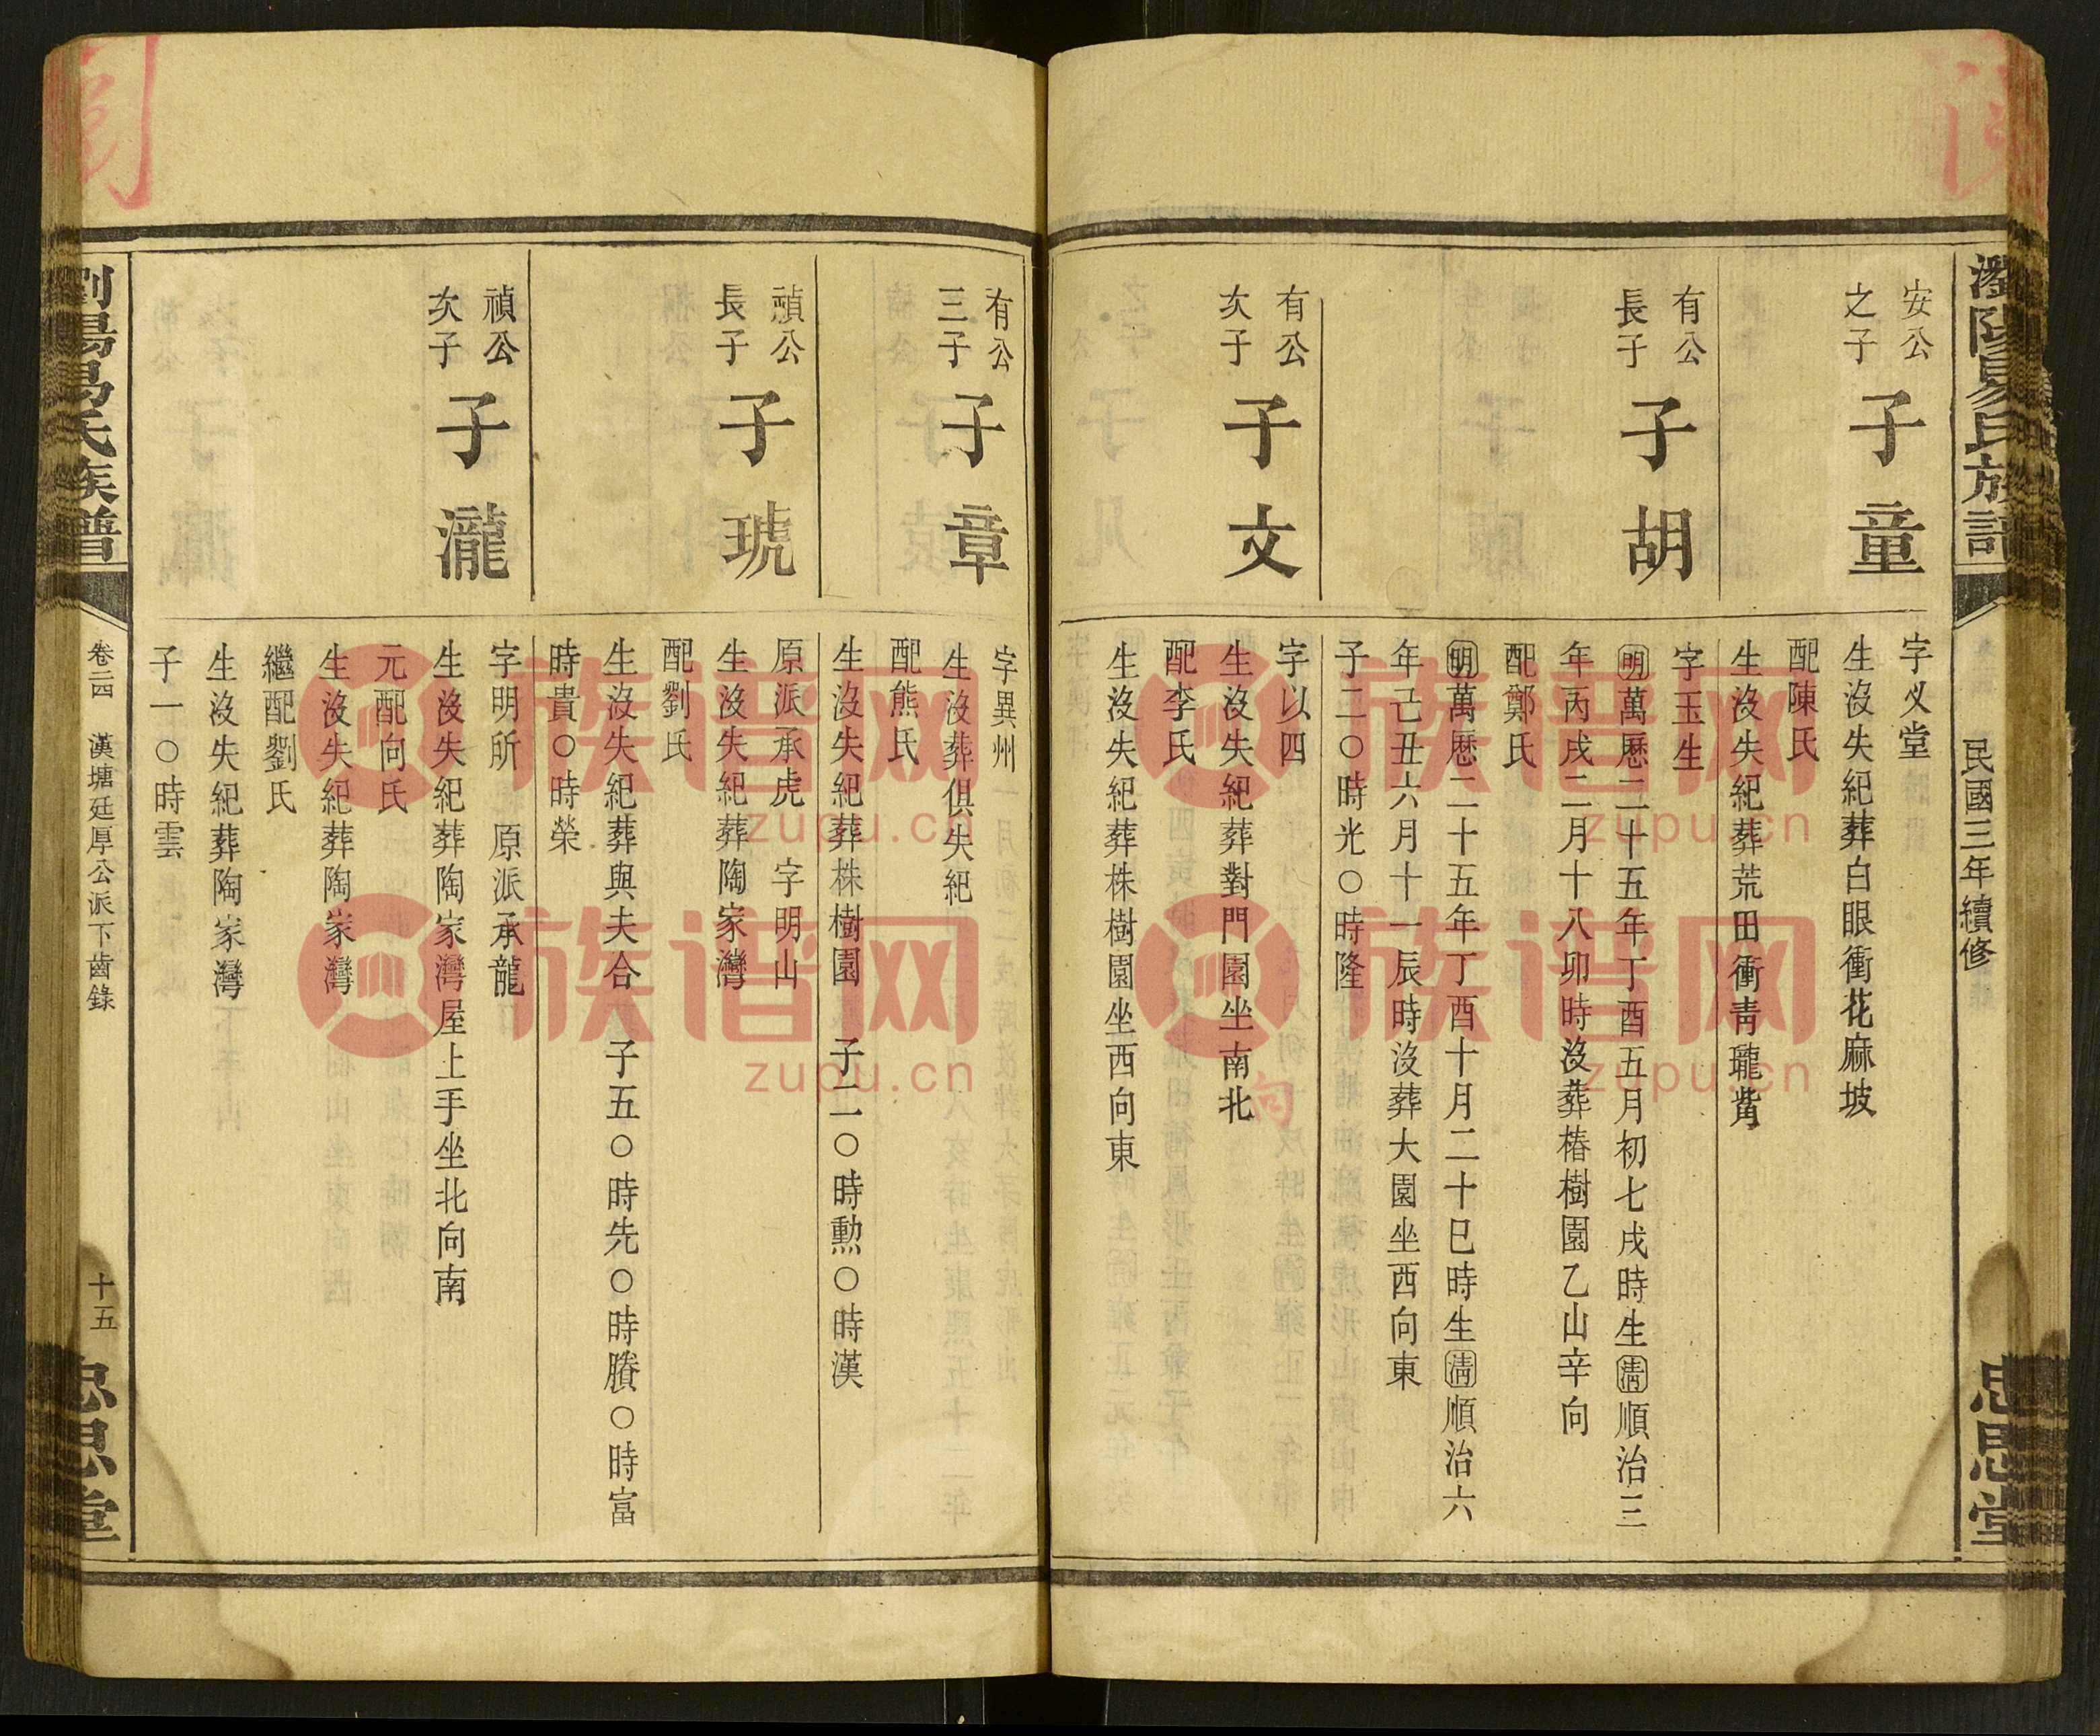 瀏陽易氏族譜
民國三年續修
忠思堂
安公
之子
子童
字义堂
生沒失紀葬白眼衝花麻坡
配陳氏
生沒失紀葬荒田衝青瓏觜
有公
長子
子胡
字玉生
明萬厯二十五年丁酉五月初七戌時生清順治三
年丙戌二月十八卯時沒葬椿樹園乙山辛向
配鄭氏
明萬厯二十五年丁酉十月二十巳時生清順治六
年己丑六月十一辰時沒葬大園坐西向東
子二〇時光〇時隆
有公
次子
子文
字以四
生沒失紀葬對門園坐南北
向
配李氏
生沒失紀葬株樹園坐西向東
有公
三子
子章
字異州
生沒葬俱失紀
配熊氏
生沒失紀葬株樹園 子二〇時勲〇時漢
禎公
長子
子琥
原派承虎 字明山
生沒失紀葬陶家灣
配劉氏
生沒失紀葬與夫合 子五〇時先〇時賸〇時富
時貴〇時榮
禎公
次子
子瀧
字明所 原派承龍
生沒失紀葬陶家灣屋上手坐北向南
元配向氏
生沒失紀葬陶家灣
繼配劉氏
生沒失紀葬陶家灣
子一〇時雲
瀏陽易氏族譜
卷二四 漢塘廷厚公派下齒錄
十五
忠思堂
族谱网
zupu.cn
族谱网
zupu.cn
族谱网
zupu.cn
族谱网
zupu.cn